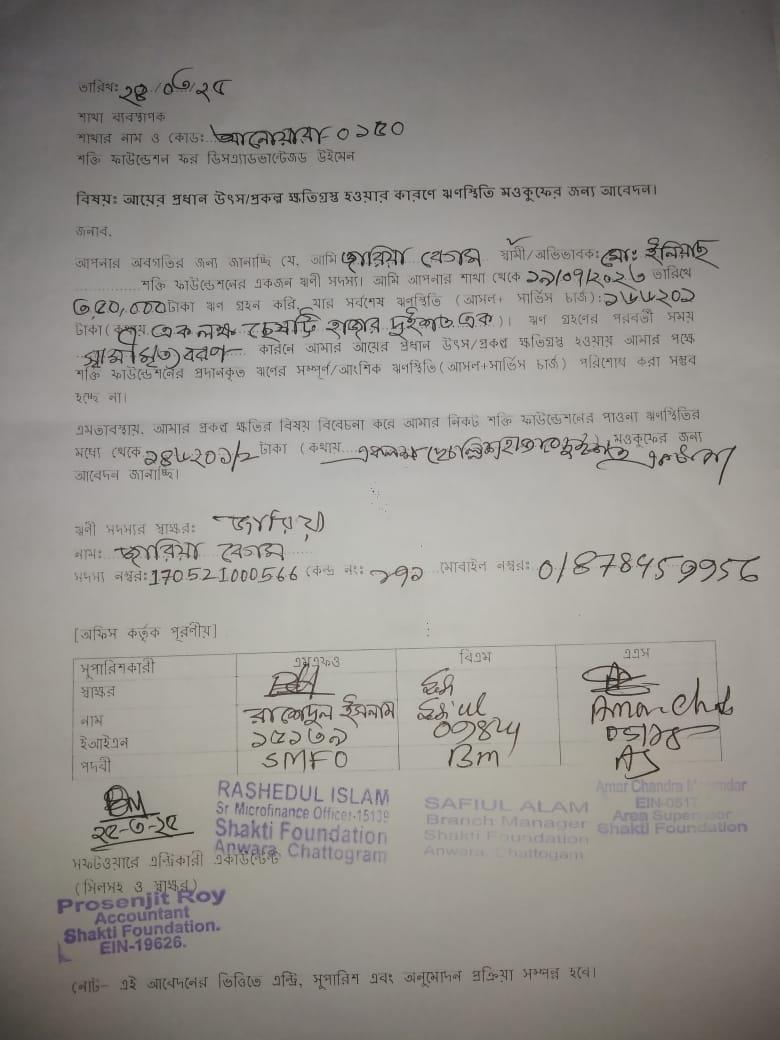 তারিখ: ২৪/০৩/২৫
শাখা ব্যবস্থাপক
শাখার নাম ও কোড: আনোয়ারা-০১৫০
শক্তি ফাউন্ডেশন ফর ডিসএ্যাডভান্টেজড উইমেন
বিষয়: আয়ের প্রধান উৎস/প্রকল্প ক্ষতিগ্রস্থ হওয়ার কারণে ঋণস্থিতি মওকুফের জন্য আবেদন।
জনাব,
আপনার অবগতির জন্য জানাচ্ছি যে, আমি জারিয়া বেগম স্বামী/অভিভাবক: মো: ইলিয়াছ
শক্তি ফাউন্ডেশনের একজন ঋণী সদস্য। আমি আপনার শাখা থেকে ১৯/০৭/২০২৩ তারিখে
৩,৫০,০০০ টাকা ঋণ গ্রহন করি, যার সর্বশেষ ঋণস্থিতি (আসল+ সার্ভিস চার্জ): ১৬৬২০১
টাকা (কথায় এক লক্ষ ছেষট্টি হাজার দুইশত এক)। ঋণ গ্রহণের পরবর্তী সময়
স্বামী মৃত্যু বরণ কারনে আমার আয়ের প্রধান উৎস/প্রকল্প ক্ষতিগ্রস্থ হওয়ায় আমার পক্ষে
শক্তি ফাউন্ডেশনের প্রদানকৃত ঋণের সম্পূর্ণ/আংশিক ঋণস্থিতি (আসল+সার্ভিস চার্জ) পরিশোধ করা সম্ভব
হচ্ছে না।
এমতাবস্থায়, আমার প্রকল্প ক্ষতির বিষয় বিবেচনা করে আমার নিকট শক্তি ফাউন্ডেশনের পাওনা ঋণস্থিতির
মধ্যে থেকে টাকা (কথায় মওকুফের জন্য
আবেদন জানাচ্ছি।
ঋণী সদস্যর স্বাক্ষর: জারিয়া
নাম: জারিয়া বেগম
সদস্য নম্বর: 170521000566 কেন্দ্র নং: ২৭১ মোবাইল নম্বর:
[অফিস কর্তৃক পূরণীয়]
সুপারিশকারী এমএফও বিএম এএস
স্বাক্ষর
নাম রাশেদুল ইসলাম
ইআইএন ১৫১৩৯
পদবী SMFO BM AS
২৫-৩-২৫
RASHEDUL ISLAM
Sr Microfinance Officer-15139
Shakti Foundation
Anwara, Chattogram
SAFIUL ALAM
Branch Manager
Shakti Foundation
Anwara, Chattogam
Amar Chandra
EIN-0517
Area Supervisor
Shakti Foundation
সফটওয়ারে এন্ট্রিকারী একাউন্টেন্ট
(সিলসহ ও স্বাক্ষর)
Prosenjit Roy
Accountant
Shakti Foundation.
EIN-19626.
নোট- এই আবেদনের ভিত্তিতে এন্ট্রি, সুপারিশ এবং অনুমোদন প্রক্রিয়া সম্পন্ন হবে।